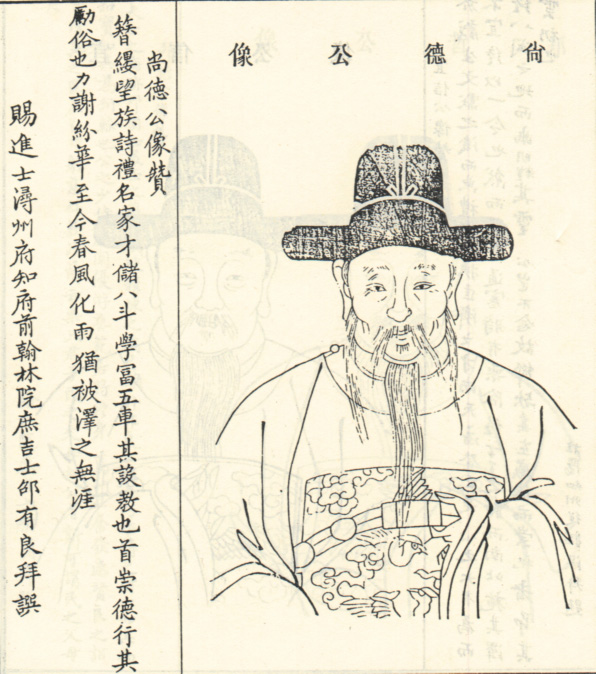 尚德公像
尚德公像贊
簪纓望族詩禮名家才儲八斗學冨五車其設教也首崇德行其
勵俗也力謝紛華至今春風化雨猶被澤之無涯
賜進士潯州府知府前翰林院庶吉士邰有良拜譔